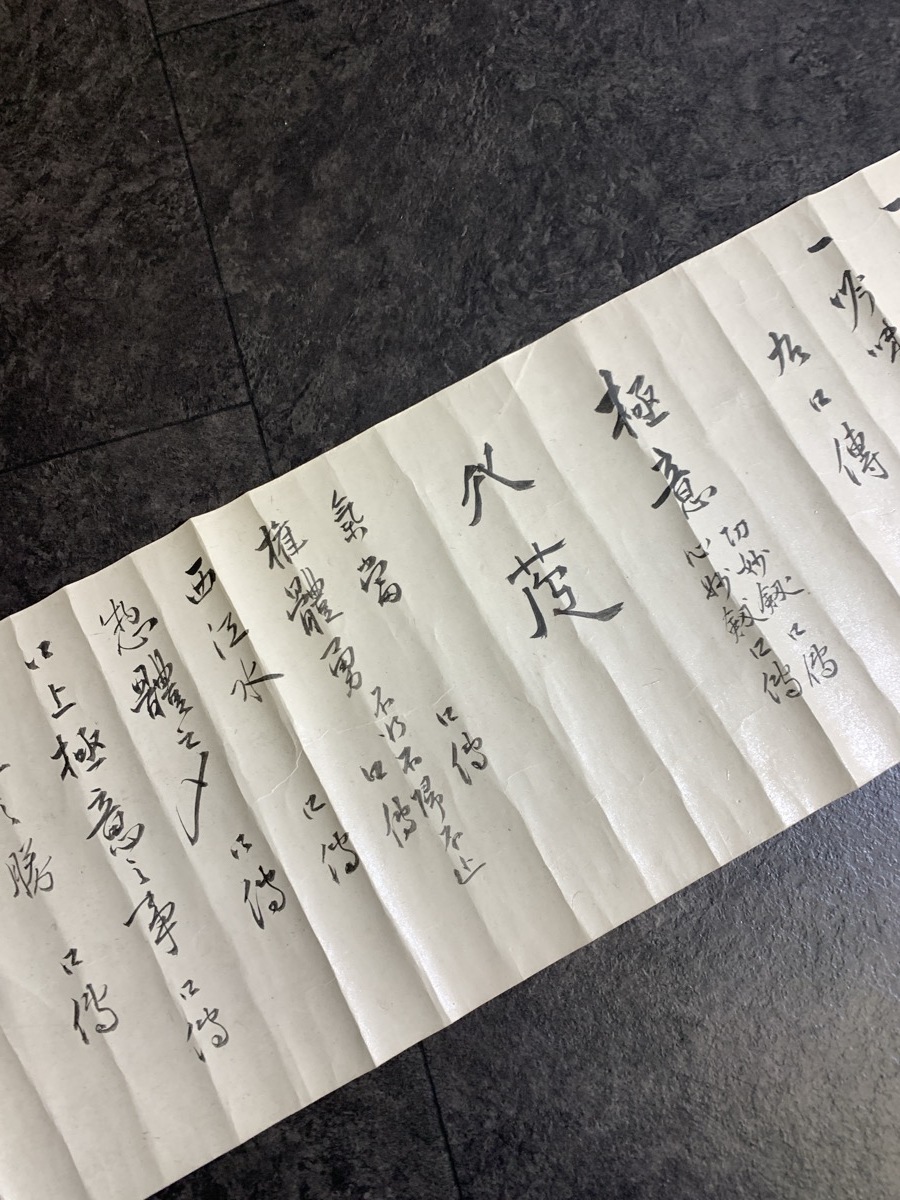 一吟味
右口傳
極意 切妙剱 口傳
心妙剱 口傳
八
氣當 口傳
權體勇 不行不帰不止
口傳
西江水 口傳
惣體之〆 口傳
以上極意之事 口傳
勝 口傳